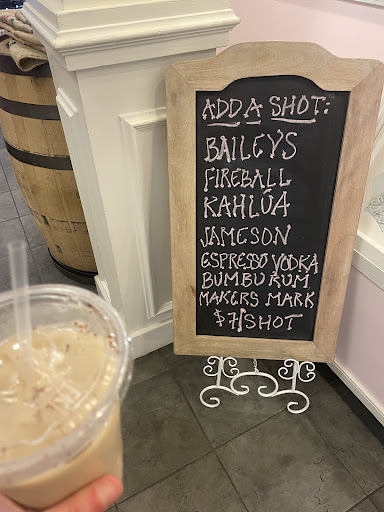 ADD A SHOT:
BAILEYS
FIREBALL
KAHLÚA
JAMESON
ESPRESSO VODKA
BUMBU RUM
MAKERS MARK
$7/SHOT